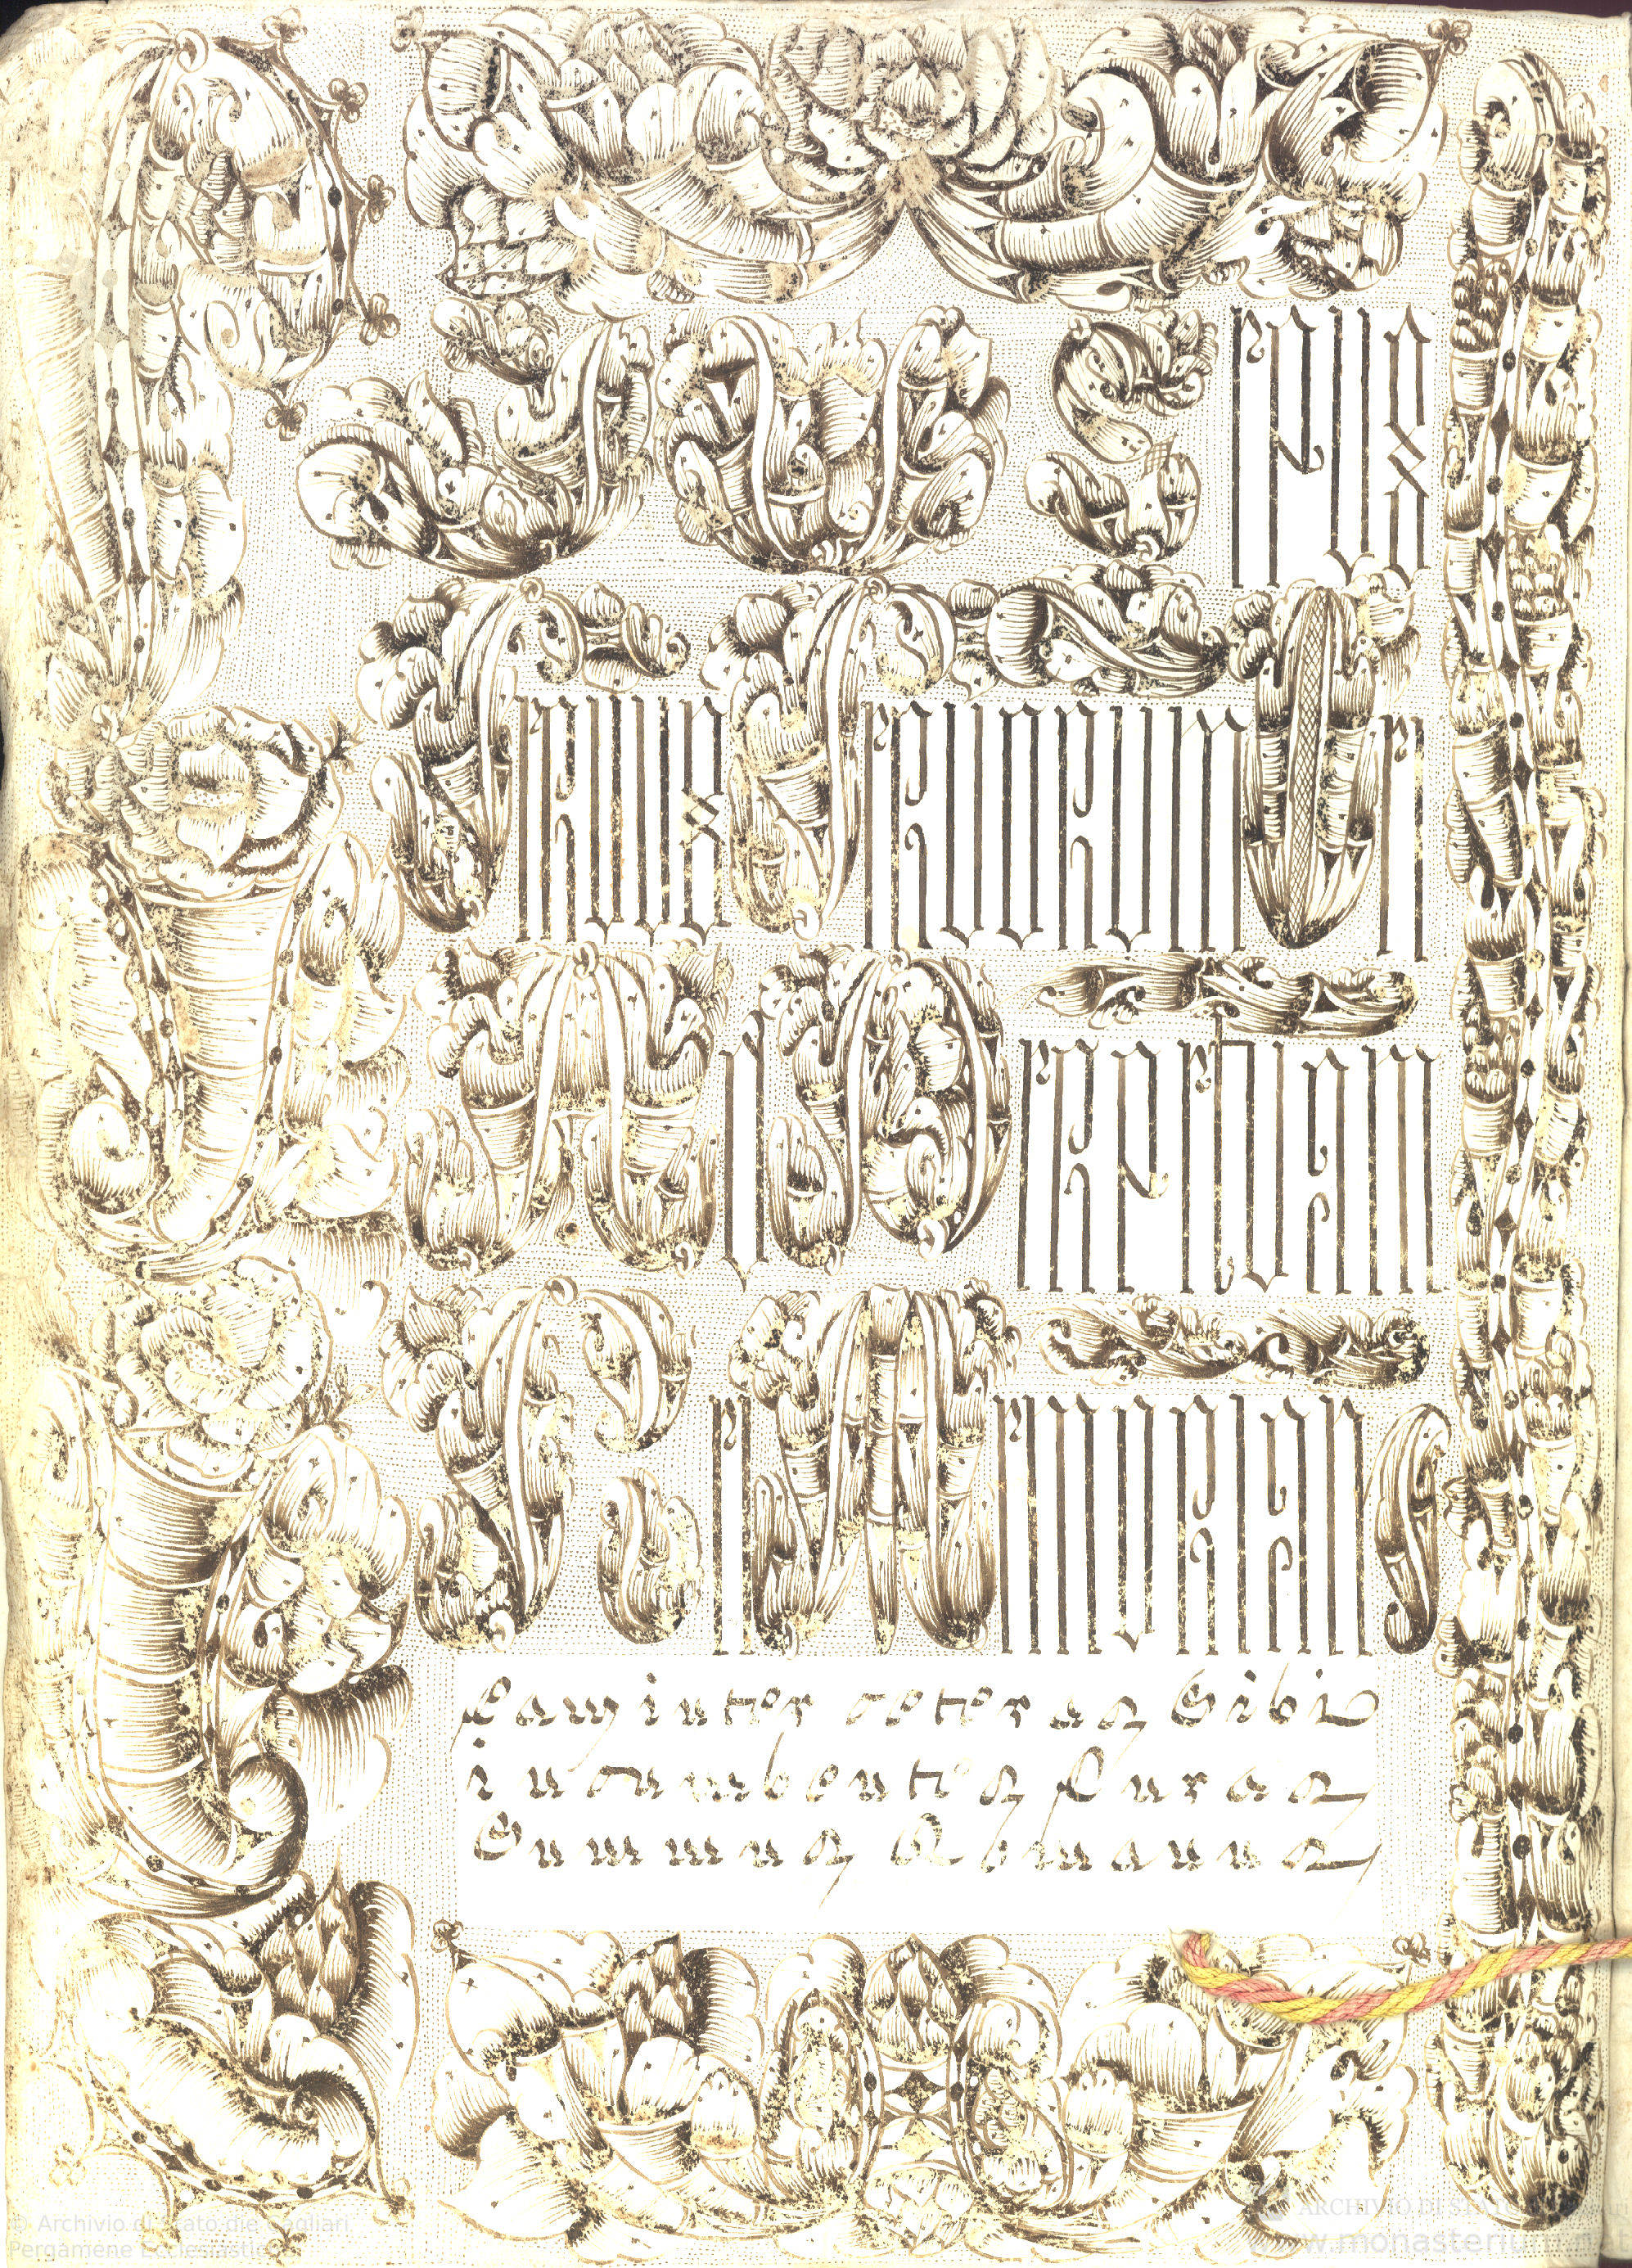 PIUS epus
Seruus Seruorum Dei
Ad Perpetuam
Rei Memoriam
inter ceteras Sibi
incumbentes Curas
Summus Romanus
© Archivio di Stato die Cagliari,
Pergamene Ecclesiastiche
ARCHIVIO DI STATO
www.monasterium.net